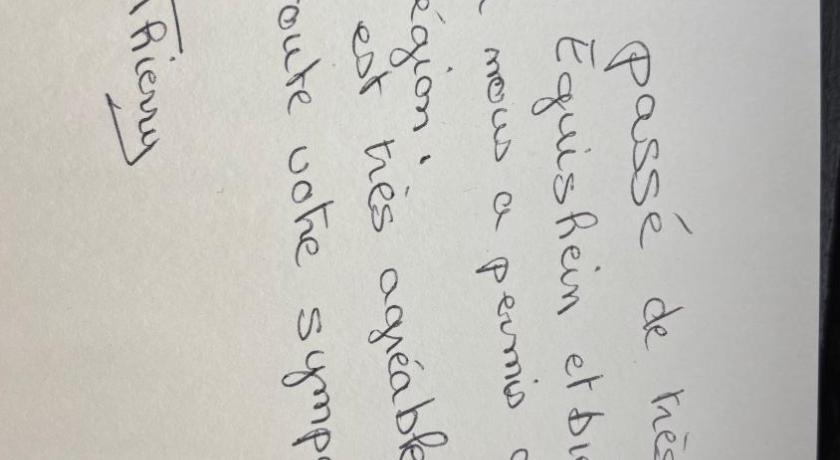 passé de très
Eguishein et bi
nous a permis
égion.
est très agréable
oute votre symp
Thierry